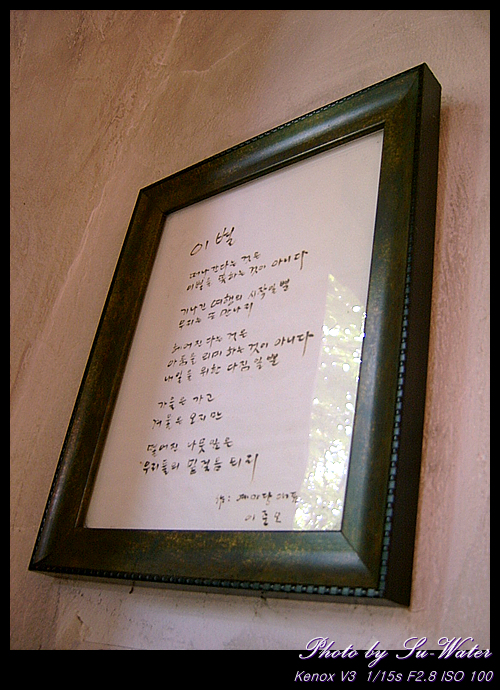 이별
떠나간다는 것은
이별을 뜻하는것이 아니다
기나긴 여행의 시작일뿐
우리는 또 만나리
헤어진다는 것은
아픔을 의미하는것이 아니다
내일을 위한 다짐일뿐
가을은 가고
겨울은 오지만
떨어진 나뭇잎은
우리들의 밑거름 되리
이
Photo by Su-Water
Kenox V3 1/15s F2.8 ISO 100